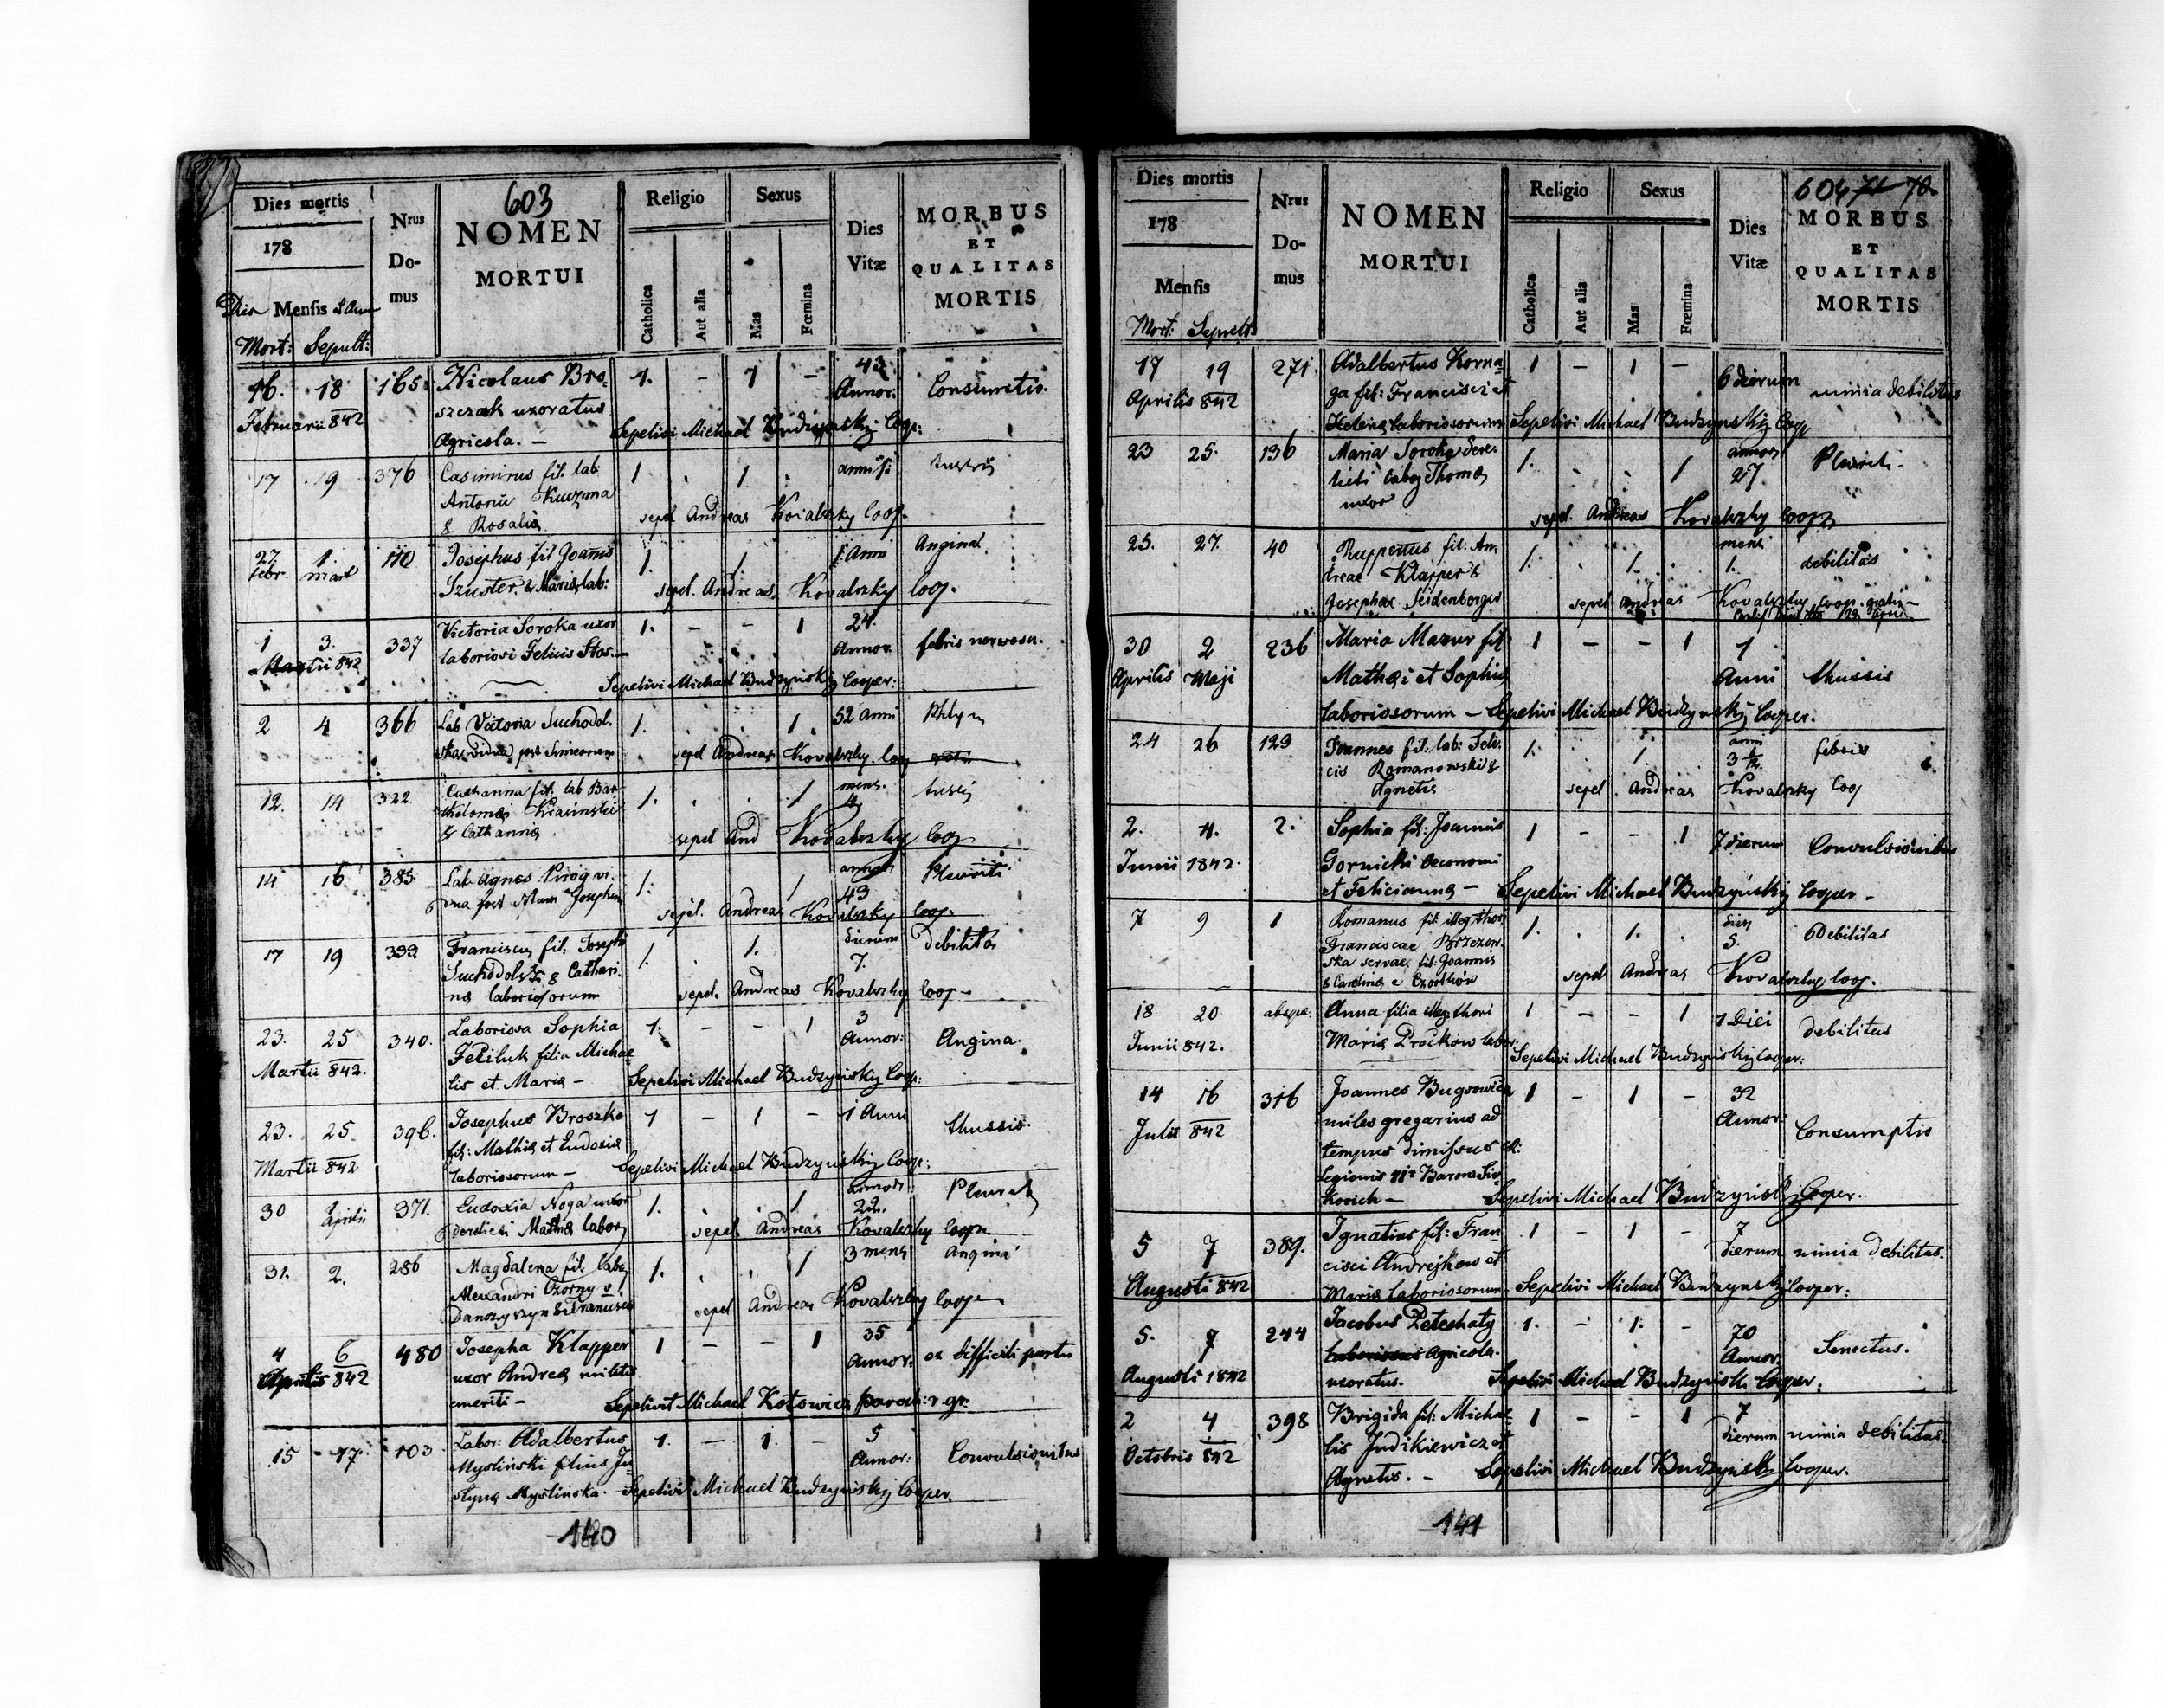 603
Dies mortis
178
Dies Mensis
Mort: Sepult:
Nrus Domus
NOMEN
MORTUI
Religio
Catholica
Aut alia
Sexus
Mas
Fœmina
Dies
Vitæ
MORBUS
ET
QUALITAS
MORTIS
16. 18 165 Nicolaus Bro- 1. - 1 - 43 Consumtio
Februarii 842 szczak uxoratus Annor:
Agricola. - Sepelivi Michael Budzynsky Coop:
17 19 376 Casimirus fil. lab: 1 . 1 . tussis
Antonii Kuczma
& Rosaliæ sepel Andreas Kovalszky Coop.
27 1. 110 Josephus fil Joannis 1. 1. 1. Anni Angina
febr. mart Szuster. & Mariæ lab:
sepel. Andreas Kovalszky coop.
1 3. 337 Victoria Soroka uxor 1. - - 1 24. febris nervosa.
Martii 842 laboriosi Felicis Stos. Annor.
Sepelivi Michael Budzynsky Cooper:
2 4 366 Lab Victoria Suchodol. 1. . . 1 52 anni
ska vidua post Simeonem sepel Andreas Kovalszky coop
12. 14 322 Catharina fil: lab Bar 1. . . 1 mens. tussis
tholomæi Krasinskie 4
& Catharinæ sepel And Kovalszky Coop
14 16. 385 Lab. Agnes Pirog vi. 1. 1 annor Pleuriti
dua post Josephum 43
sepel. Andreas Kovalszky Coop.
17 19 399. Franciscus fil: Josephi 1. . 1. dierum debilitas
Suchodolski & Cathari. 7.
næ laboriosorum sepel. Andreas Kovalszky Coop -
23. 25 340. Laboriosa Sophia 1. - - 1 3 Angina.
Martii 842. Feciluk filia Michae Annor:
lis et Mariæ - Sepelivi Michael Budzynsky Coop:
23. 25 396. Josephus Broszko 1 - 1 - 1 Anni thussis.
Martii 842 fil: Mathiæ et Eudoxiæ
laboriosorum - Sepelivi Michael Budzynsky Coop:
30 1 Aprilii 371. Eudoxia Noga uxor 1. . . 1 annor
derelicti Mathiæ labor 22.
sepel. Andreas Kovalszky coop
31. 2. 286 Magdalena fil. labor 1. . . 1 3 mens Angina
Alexandri Czorny v.
Danczyszyn & Franciscæ sepel Andreas Kovalszky Coop
4 6 480 Josepha Klapper 1 - - 1 35 ex difficili partu
Aprilis 842 uxor Andreæ militis Annor:
emeriti - Sepelivit Michael Kotowicz Paroch: r. gr.
15 - 17. 103 Labor: Adalbertus 1. - 1. - 5 Convulsionibus
Mysliński filius Ju Annor:
styna Myslińska. Sepelivi Michael Budzynsky Cooper.
140
604 71 70
Dies mortis
178
Mensis
Mort: Sepult:
Nrus Domus
NOMEN
MORTUI
Religio
Catholica
Aut alia
Sexus
Mas
Fœmina
Dies
Vitæ
MORBUS
ET
QUALITAS
MORTIS
17 19 271. Adalbertus Korna 1 - 1 - 6 dierum nimia debilitas
Aprilis 842 ga fil: Francisci et
Helenæ laboriosorum Sepelivi Michael Budzynsky Coop
23 25. 136 Maria Soroka dere- 1. . . 1 annor Pleuriti.
licti labor Thomæ 27.
uxor sepel. Andreas Kovalszky Coop
25. 27. 40 Ruppertus fil: An 1. . 1. . mens debilitas
dreae Klapper & 1.
Josephae Seidenberger sepel Andreas Kovalszky Coop. gratis -
30 2 236 Maria Mazur fil: 1 - - 1 1 thussis
Aprilis Maji Mathæi et Sophiæ Anni
laboriosorum - Sepelivi Michael Budzynsky Cooper.
24 26 129 Joannes fil: lab: Feli. 1. 1. anni febris
cis Romanowski &
Agnetis sepel. Andreas Kovalszky Coop
2. 4. 2. Sophia fil: Joannis 1 - - 1 7 dierum Convulsionibus
Junii 1842. Gornicki Oeconomi
et Felicianna - Sepelivi Michael Budzynsky Cooper -
7 9 1 Romanus fil illeg. thor 1. . 1. . dies Debilitas
Franciscae Brzezow. 5.
ska servae, fil: Joannis
& Carolina e Czortkow sepel Andreas Kovalszky Coop.
18 20 Anna filia illeg. thori 1 - - 1 1 Diei debilitas
Junii 842. Mariæ Prockow labor:
Sepelivi Michael Budzynsky Cooper:
14 16 316 Joannes Bugrowicz 1 - 1 - 32 Consumptio
Julii 842 miles gregarius ad Annor:
tempus dimissus
Legionis Baron
Sepelivi Michael Budzynsky Cooper.
5 7 389. Ignatius fil: Fran 1 - 1 - 7 nimia debilitas.
Augusti 842 cisci Andrejkow et dierum
Mariæ laboriosorum Sepelivi Michael Budzynsky Cooper:
5. 7 244 Jacobus Peteshaty 1. - 1. - 70 Senectus.
Augusti 1842 Agricola Annor:
uxoratus. Sepelivi Michael Budzynski Cooper.
2 4 398 Brigida fil: Micha 1 - - 1 7 nimia debilitas
Octobris 842 lis Judikiewicz et dierum
Agnetis. - Sepelivi Michael Budzynsky Cooper.
141